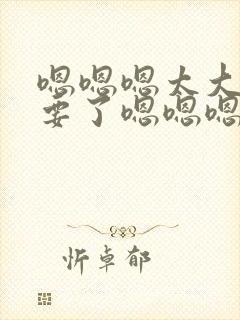 嗯嗯嗯太大
要了嗯嗯嗯
忻卓郁